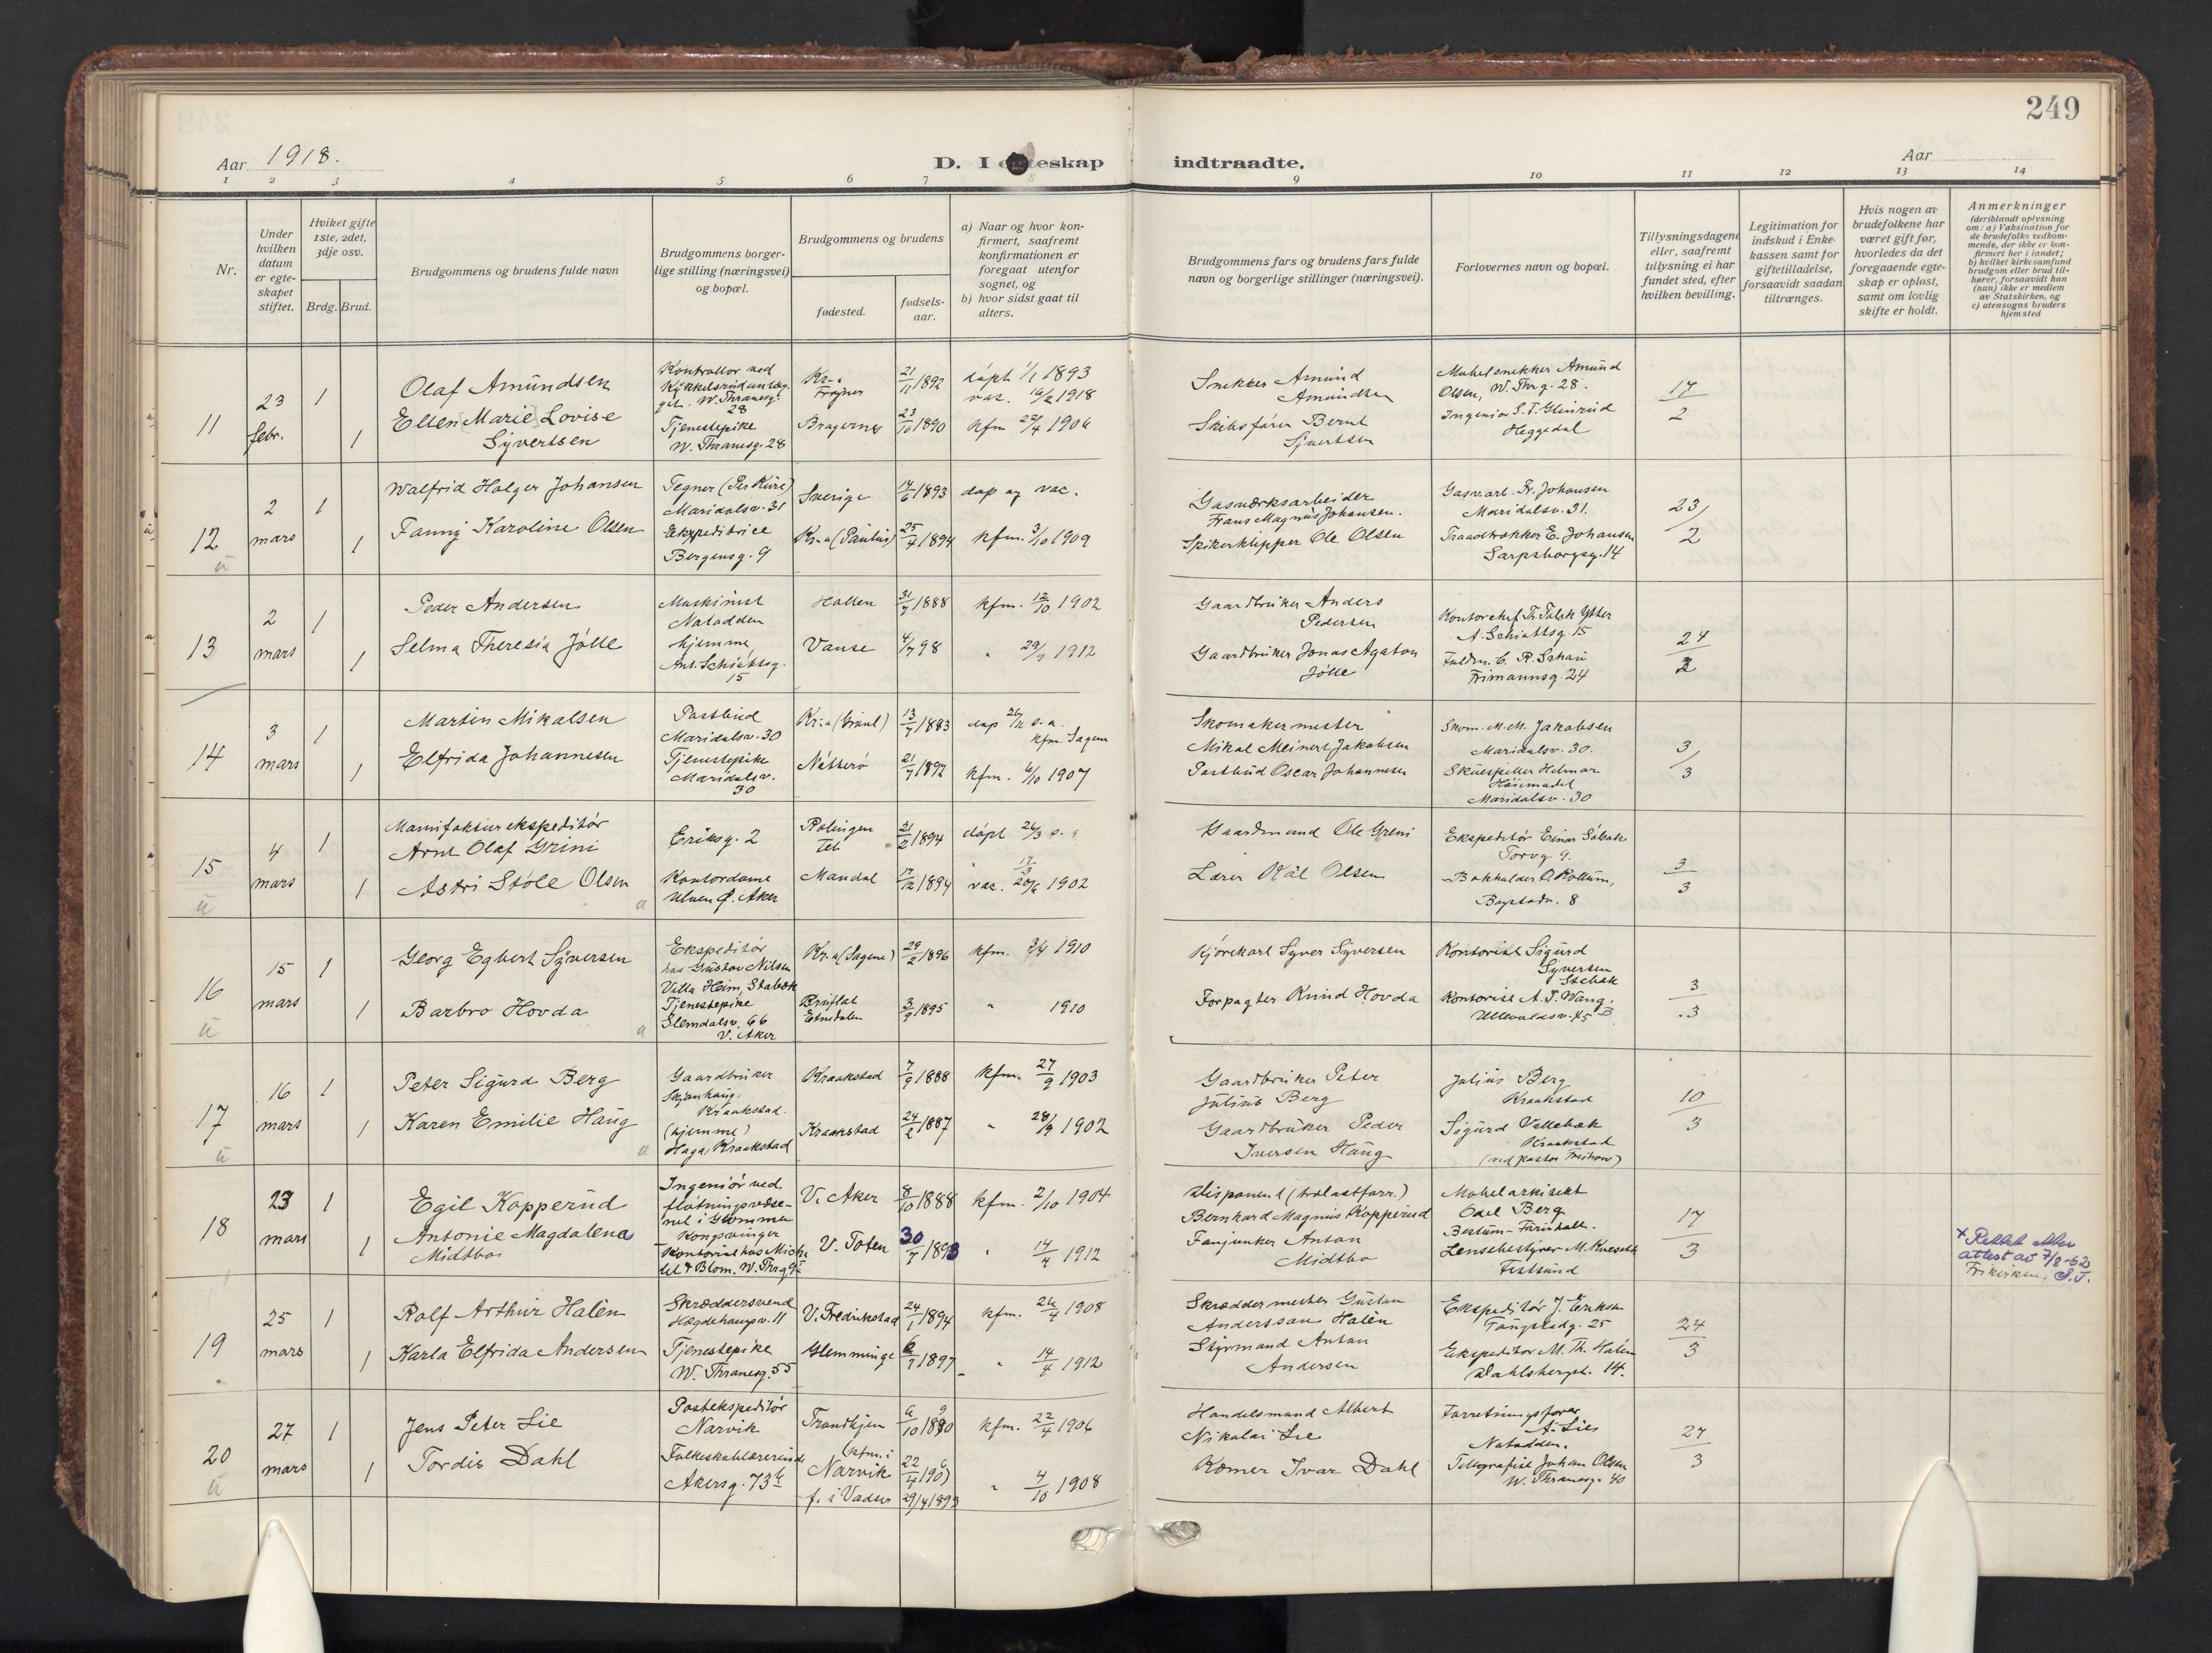 249
Aar 1918.
D. I egteskap indtraadte.
Aar
1 2 3 4 5 6 7 8 9 10 11 12 13 14
Nr.
Under hvilken datum er egteskapet stiftet.
Hvilket gifte 1ste, 2det, 3dje osv.
Brdg. Brud.
Brudgommens og brudens fulde navn
Brudgommens borgerlige stilling (næringsvei) og bopæl.
Brudgommens og brudens
fødested.
fødselsaar.
a) Naar og hvor konfirmert, saafremt konfirmationen er foregaat utenfor sognet, og
b) hvor sidst gaat til alters.
Brudgommens fars og brudens fars fulde navn og borgerlige stillinger (næringsvei).
Forlovernes navn og bopæl.
Tillysningsdagene eller, saafremt tillysning ei har fundet sted, efter hvilken bevilling.
Legitimation for indskud i Enkekassen samt for giftetilladelse, forsaavidt saadan tiltrænges.
Hvis nogen av brudefolkene har været gift før, hvorledes da det foregaaende egteskap er opløst, samt om lovlig skifte er holdt.
Anmerkninger
(deriblandt oplysning om: a) Vaksination for de brudefolks vedkommende, der ikke er konfirmert her i landet; b) hvilket kirkesamfund brudgom eller brud tilhører, forsaavidt han (hun) ikke er medlem av Statskirken, og c) utensogns bruders hjemsted
11
23 febr.
1
Olaf Amundsen
Kontrollør ved
W. Thranesg. 28
Kr.a Frogner
21/11 1892
døpt 1/1 1893
vac. 16/2 1918
Snekker Amund Amundsen
Møbelsnekker Amund Olsen, W. Thrg. 28.
17/2
1
Ellen Marie Lovise Syvertsen
Tjenestepike
W. Thranesg. 28
Bragernes
23/10 1890
kfm 22/4 1906
Skibsfører Bernt Syvertsen
Heggedal
12
2 mars
1
Walfrid Holger Johansen
Tegner
Maridalsv. 31
Sverige
14/6 1893
døp og vac.
Gasværksarbeider Frans Magnus Johansen.
Gasv.arb. Fr. Johansen
Maridalsv. 31.
23/2
1
Fanny Karoline Olsen
Ekspeditrice
Bergensg. 9
Kr.a (Paulus)
25/4 1894
kfm. 3/10 1909
Spikerklipper Ole Olsen
Traadtrækker E. Johansen
Sarpsborgsg. 14
13
2 mars
1
Peder Andersen
Maskinist
Notodden
Holten
31/7 1888
kfm. 12/10 1902
Gaardbruker Anders Pedersen
Kontorchef Th. Falck Ytter
A. Schiøttsg. 15
24/2
1
Selma Theresia Jølle
hjemme
Ant. Schiøttsg. 15
Vanse
4/7 98
" 29/9 1912
Gaardbruker Jonas Agaton Jølle
Frimannsg. 24
14
3 mars
1
Martin Mikalsen
Postbud
Maridalsv. 30
Kr.a (Grønl)
13/7 1883
døp 26/11 s.a.
kfm. Sagene
Skomakermester Mikal Meinert Jakobsen
Skom. M. M. Jakobsen
Maridalsv. 30.
3/3
1
Elfrida Johannesen
Tjenestepike
Maridalsv. 30
Nøtterø
21/7 1892
kfm. 6/10 1907
Postbud Oscar Johannesen
Skuespiller Hilmar
Maridalsv. 30
15
4 mars
1
Manufakturekspeditør
Arnt Olaf Grini
Eriksg. 2
21/2 1894
døpt 26/3 s.a
Gaardmand Ole Greni
Ekspeditør Einar
Torvg. 9.
3/3
1
Astri Støle Olsen
Kontordame
Ulven Ø. Aker
Mandal
17/12 1894
vac. 20/6 1902
Lærer Kål Olsen
Bokholder O. Kollum,
Bogstadv. 8
16
15 mars
1
Georg Egbert Syversen
Ekspeditør
hos Gustav Nilsen
Villa Heim, Stabæk
Kr.a (Sagene)
29/2 1896
kfm. 3/4 1910
Kjørekarl Syver Syversen
Kontorist Sigurd Syversen
Stabæk
3/3
1
Barbro Hovda
Tjenestepike
Slemdalsv. 66
V. Aker
Bruflat
Etnedalen
3/9 1895
" 1910
Forpagter Knud Hovda
Kontorist A. T. Wang,
Ullevaldsv. 45 B
17
16 mars
1
Peter Sigurd Berg
Gaardbruker
Skjønhaug.
Kraakstad.
Kraakstad
7/9 1888
kfm. 27/9 1903
Gaardbruker Peter Julius Berg
Julius Berg
Kraakstad
10/3
1
Karen Emilie Haug
(hjemme)
Haga, Kraakstad
Kraakstad
24/2 1887
" 28/9 1902
Gaardbruker Peder Iversen Haug
Sigurd Vellebæk
Kraakstad
18
23 mars
1
Egil Kopperud
Ingeniør ved fløtningsvæsenet i Glommen
Kongsvinger
V. Aker
8/10 1888
kfm. 2/10 1904
Disponent (trælastforr.)
Bernhard Magnus Kopperud
Møbelarkitekt
Carl Berg
17/3
1
Antonie Magdalena Midtbo
Kontorist hos Michelet & Blom. W. Thrg 9
V. Toten
30/7 1893
" 14/4 1912
Fanjunker Anton Midtbo
Lensbestyrer M. Kveseth
Fetsund
x Rettet efter attest av 7/8-62
Frikirken. S.T.
19
25 mars
1
Rolf Arthur Halén
Skræddersvend
Hægdehaugsv. 11
V. Fredrikstad
24/1 1894
kfm. 26/4 1908
Skræddermester Gustav Andersson Halén
Ekspeditør J. Eriksen
Tøyengadg. 25
24/3
1
Karla Elfrida Andersen
Tjenestepike
W. Thranesg. 55
Glemminge
6/7 1897
" 14/4 1912
Styrmand Anton Andersen
Ekspeditør M. Th. Halén
Dahlsbergst. 14.
20
27 mars
1
Jens Peter Lie
Postekspeditør
Narvik
Trondhjem
6/10 1890
kfm. 22/4 1906
Handelsmand Albert Nikolai Lie
Forretningsfører
A. Lie
Notodden.
27/3
1
Tordis Dahl
Folkeskolelærerinde
Akersg. 73
(kfm. i Narvik
22/4 1906)
f. i Vadsø 29/4 1893
" 4/10 1908
Kæmner Ivar Dahl
Telegrafist Johan Olsen
W. Thranesg. 40